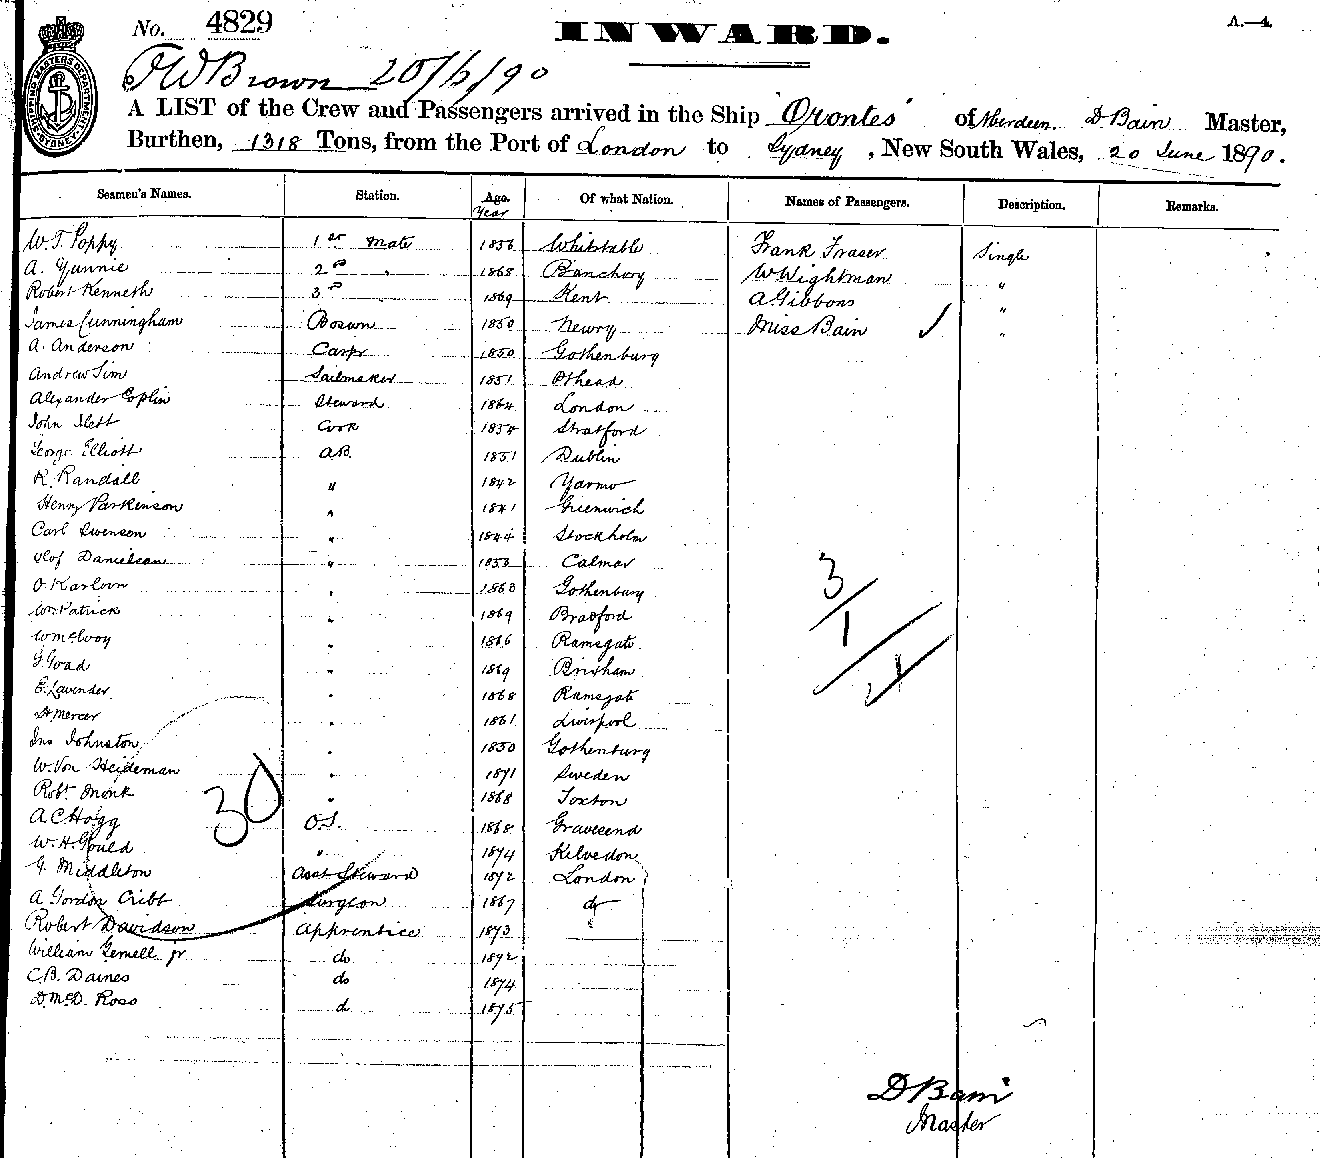 No. 4829
INWARD.
A.—4.
SHIPPING MASTERS DEPARTMENT SYDNEY
FW Brown 20/6/90
A LIST of the Crew and Passengers arrived in the Ship Orontes of Aberdeen. D Bain Master,
Burthen, 1318 Tons, from the Port of London to Sydney, New South Wales, 20 June 1890.
Seamen's Names. Station. Age. Of what Nation. Names of Passengers. Description. Remarks.
Year
W. T. Poppy 1st Mate 1856 Whitstable Frank Fraser Single
A. Gunnie 2nd " 1868 Banchory W Wightman "
Robert Kenneth 3rd 1869 Kent A Gibbons "
James Cunningham Bosun 1850 Newry Miss Bain "
A. Anderson Carpr 1850 Gothenburg
Andrew Sim Sailmaker 1851
Alexander Coplin Steward 1864 London
John Ilett Cook Stratford
George Elliott AB. 1851 Dublin
R. Randall " 1842 Yarmo
Henry Parkinson " 1841 Greenwich
Carl Swenson " 1844 Stockholm
Olof Danielson " 1853 Calmar
O. Karlson " 1863 Gothenburg
Wm Patrick " 1869 Bradford
W McEvoy " 1866 Ramsgate
G. Goad " 1869 Brixham
E. Lavender " 1868 Ramsgate
H Mercer " 1861 Liverpool
Jno Johnston " 1850 Gothenburg
W. Von Heideman " 1871 Sweden
Robt Monk " 1868 Toxton
A C Hogg O.S. 1868 Gravesend
W. H. Gould " 1874 Kelvedon
G. Middleton Asst Steward 1872 London
A Gordon Cribb Surgeon 1867 do
Robert Davidson Apprentice 1873
William Gemell jr do 1872
C.B. Daines do 1874
D. McD. Ross do 1875
30
3/1/
D Bain
Master